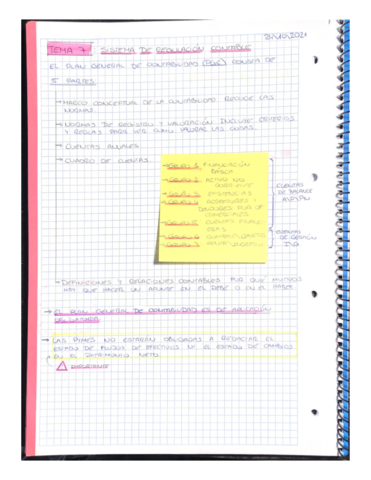 24/10/2021
TEMA 7 SISTEMA DE REGULACIÓN CONTABLE
EL PLAN GENERAL DE CONTABILIDAD (PGC) CONSTA DE
5 PARTES
→ MARCO CONCEPTUAL DE LA CONTABILIDAD RECOGE LAS
NORMAS
→ NORMAS DE REGISTRO Y VALORACIÓN INCLUYE CRITERIOS
Y REGLAS PARA VALORAR LAS
→ CUENTAS ANUALES
→ CUADRO DE CUENTAS
GRUPO 1 FINANCIACIÓN
BÁSICA
GRUPO 2 ACTIVO NO
CORRIENTE
GRUPO 3 EXISTENCIAS
GRUPO 4 ACREEDORES Y
DEUDORES POR OP.
COMERCIALES
GRUPO 5 CUENTAS
GRUPO 6
GRUPO 7
CUENTAS
DE BALANCE
CUENTAS
DE GESTIÓN
→ DEFINICIONES Y RELACIONES CONTABLES POR QUE MOTIVOS
HAY QUE HACER UN APUNTE EN EL DEBE O EN EL HABER
→ EL PLAN GENERAL DE CONTABILIDAD ES DE APLICACIÓN
→ LAS PYMES NO ESTARÁN OBLIGADAS A REDACTAR EL
ESTADO DE FLUJOS DE EFECTIVOS NI EL ESTADO DE CAMBIOS
EN EL PATRIMONIO NETO
IMPORTANTE